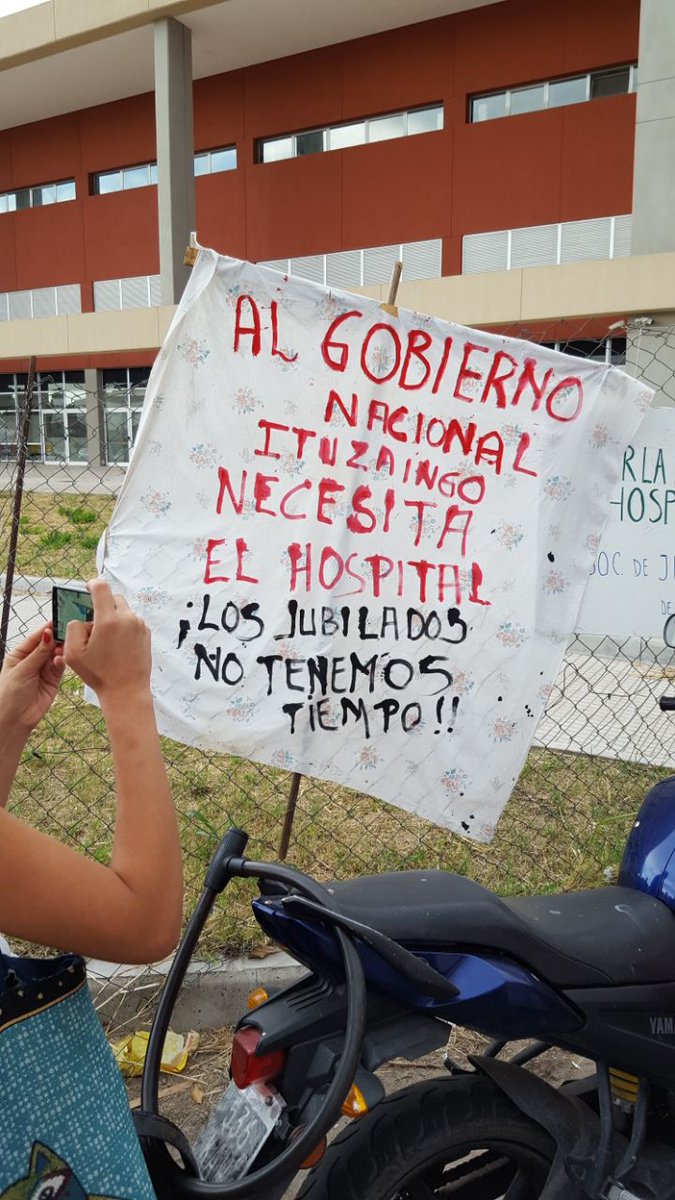 AL GOBIERNO
NACIONAL
ITUZAINGO
NECESITA
EL HOSPITAL
¡LOS JUBILADOS
NO TENEMOS
TIEMPO!!
R LA
HOSP
SOC. DE J
DE
YAMA